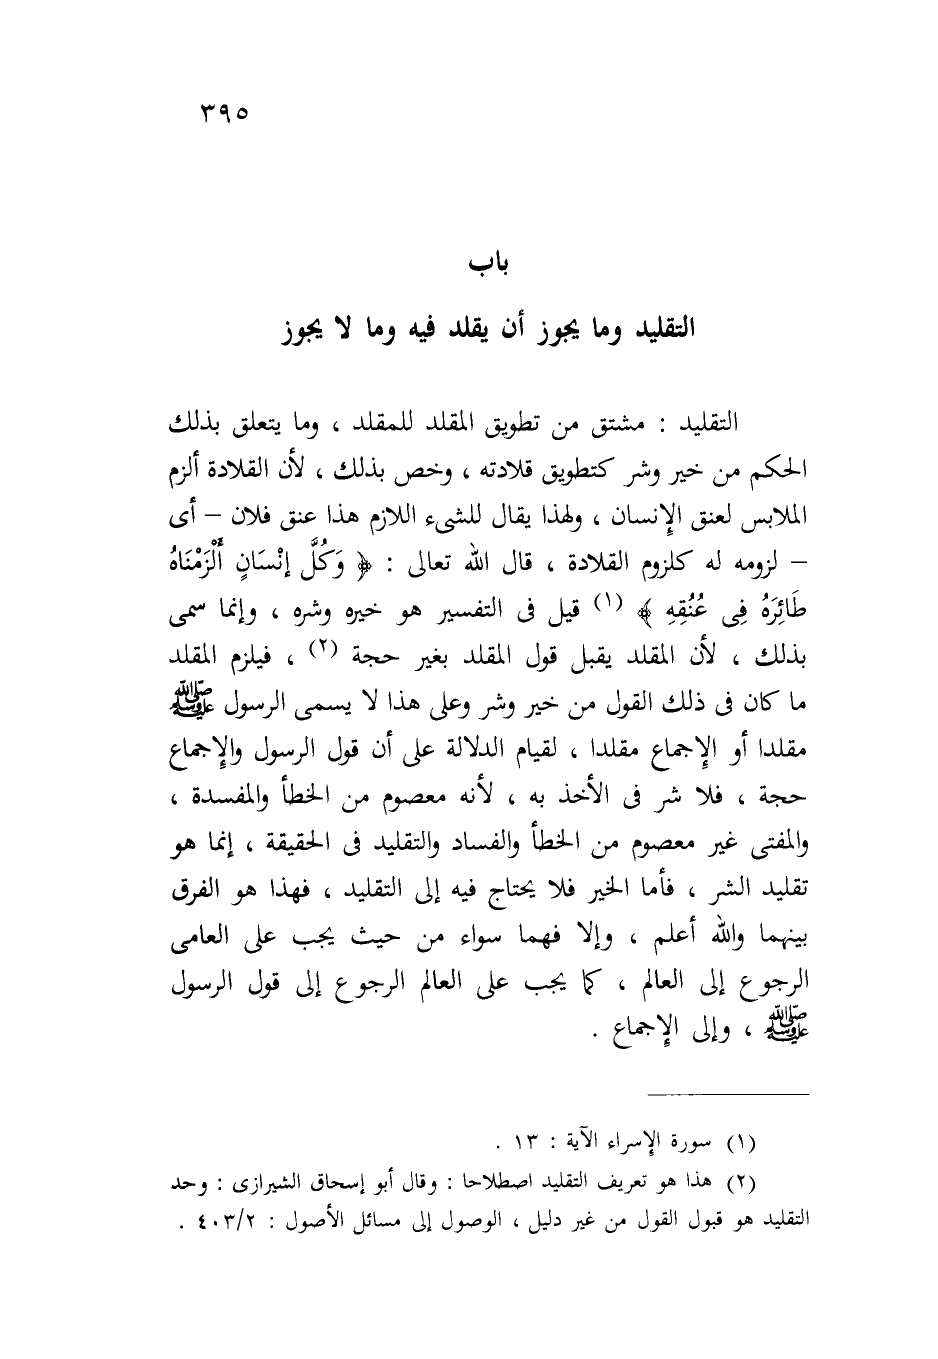 ٣٩٥
باب
التقليد وما يجوز أن يقلد فيه وما لا يجوز
التقليد : مشتق من تطويق المقلد للمقلد ، وما يتعلق بذلك
الحكم من خير وشر كتطويق قلادته ، وخص بذلك ، لأن القلادة ألزم
الملابس لعنق الإنسان ، ولهذا يقال للشىء اللازم هذا عنق فلان – أى
– لزومه له كلزوم القلادة ، قال الله تعالى : ﴿ وَكُلَّ إِنْسَانٍ أَلْزَمْنَاهُ
طَائِرَهُ فِى عُنُقِهِ ﴾ (١) قيل فى التفسير هو خيره وشره ، وإنما سمى
بذلك ، لأن المقلد يقبل قول المقلد بغير حجة (٢) ، فيلزم المقلد
ما كان فى ذلك القول من خير وشر وعلى هذا لا يسمى الرسول ﷺ
مقلدا أو الإجماع مقلدا ، لقيام الدلالة على أن قول الرسول والإجماع
حجة ، فلا شر فى الأخذ به ، لأنه معصوم من الخطأ والمفسدة ،
والمفتى غير معصوم من الخطأ والفساد والتقليد فى الحقيقة ، إنما هو
تقليد الشر ، فأما الخير فلا يحتاج فيه إلى التقليد ، فهذا هو الفرق
بينهما والله أعلم ، وإلا فهما سواء من حيث يجب على العامى
الرجوع إلى العالم ، كما يجب على العالم الرجوع إلى قول الرسول
ﷺ ، وإلى الإجماع .
(١) سورة الإسراء الآية : ١٣ .
(٢) هذا هو تعريف التقليد اصطلاحا : وقال أبو إسحاق الشيرازى : وحد
التقليد هو قبول القول من غير دليل ، الوصول إلى مسائل الأصول : ٤٠٣/٢ .